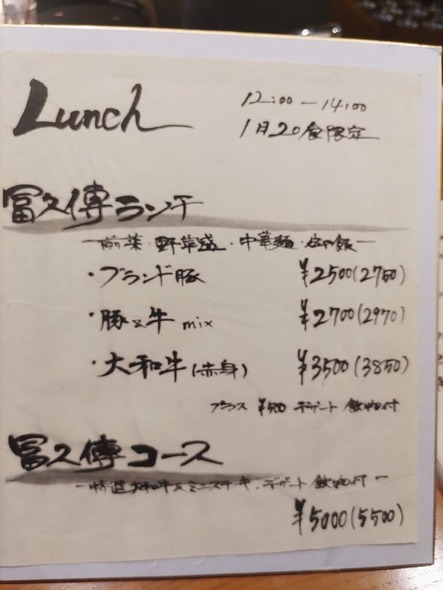 Lunch
12:00-14:00
1日20食限定
冨久傳ランチ
ー前菜・野菜盛・中華麺・ 飯ー
・ブランド豚 ¥2500(2750)
・豚と牛 mix ¥2700(2970)
・大和牛(赤身) ¥3500(3850)
プラス ¥500 デザート 飲物付
冨久傳コース
ー特選大和牛&ミニステーキ・デザート 飲物付ー
¥5000(5500)